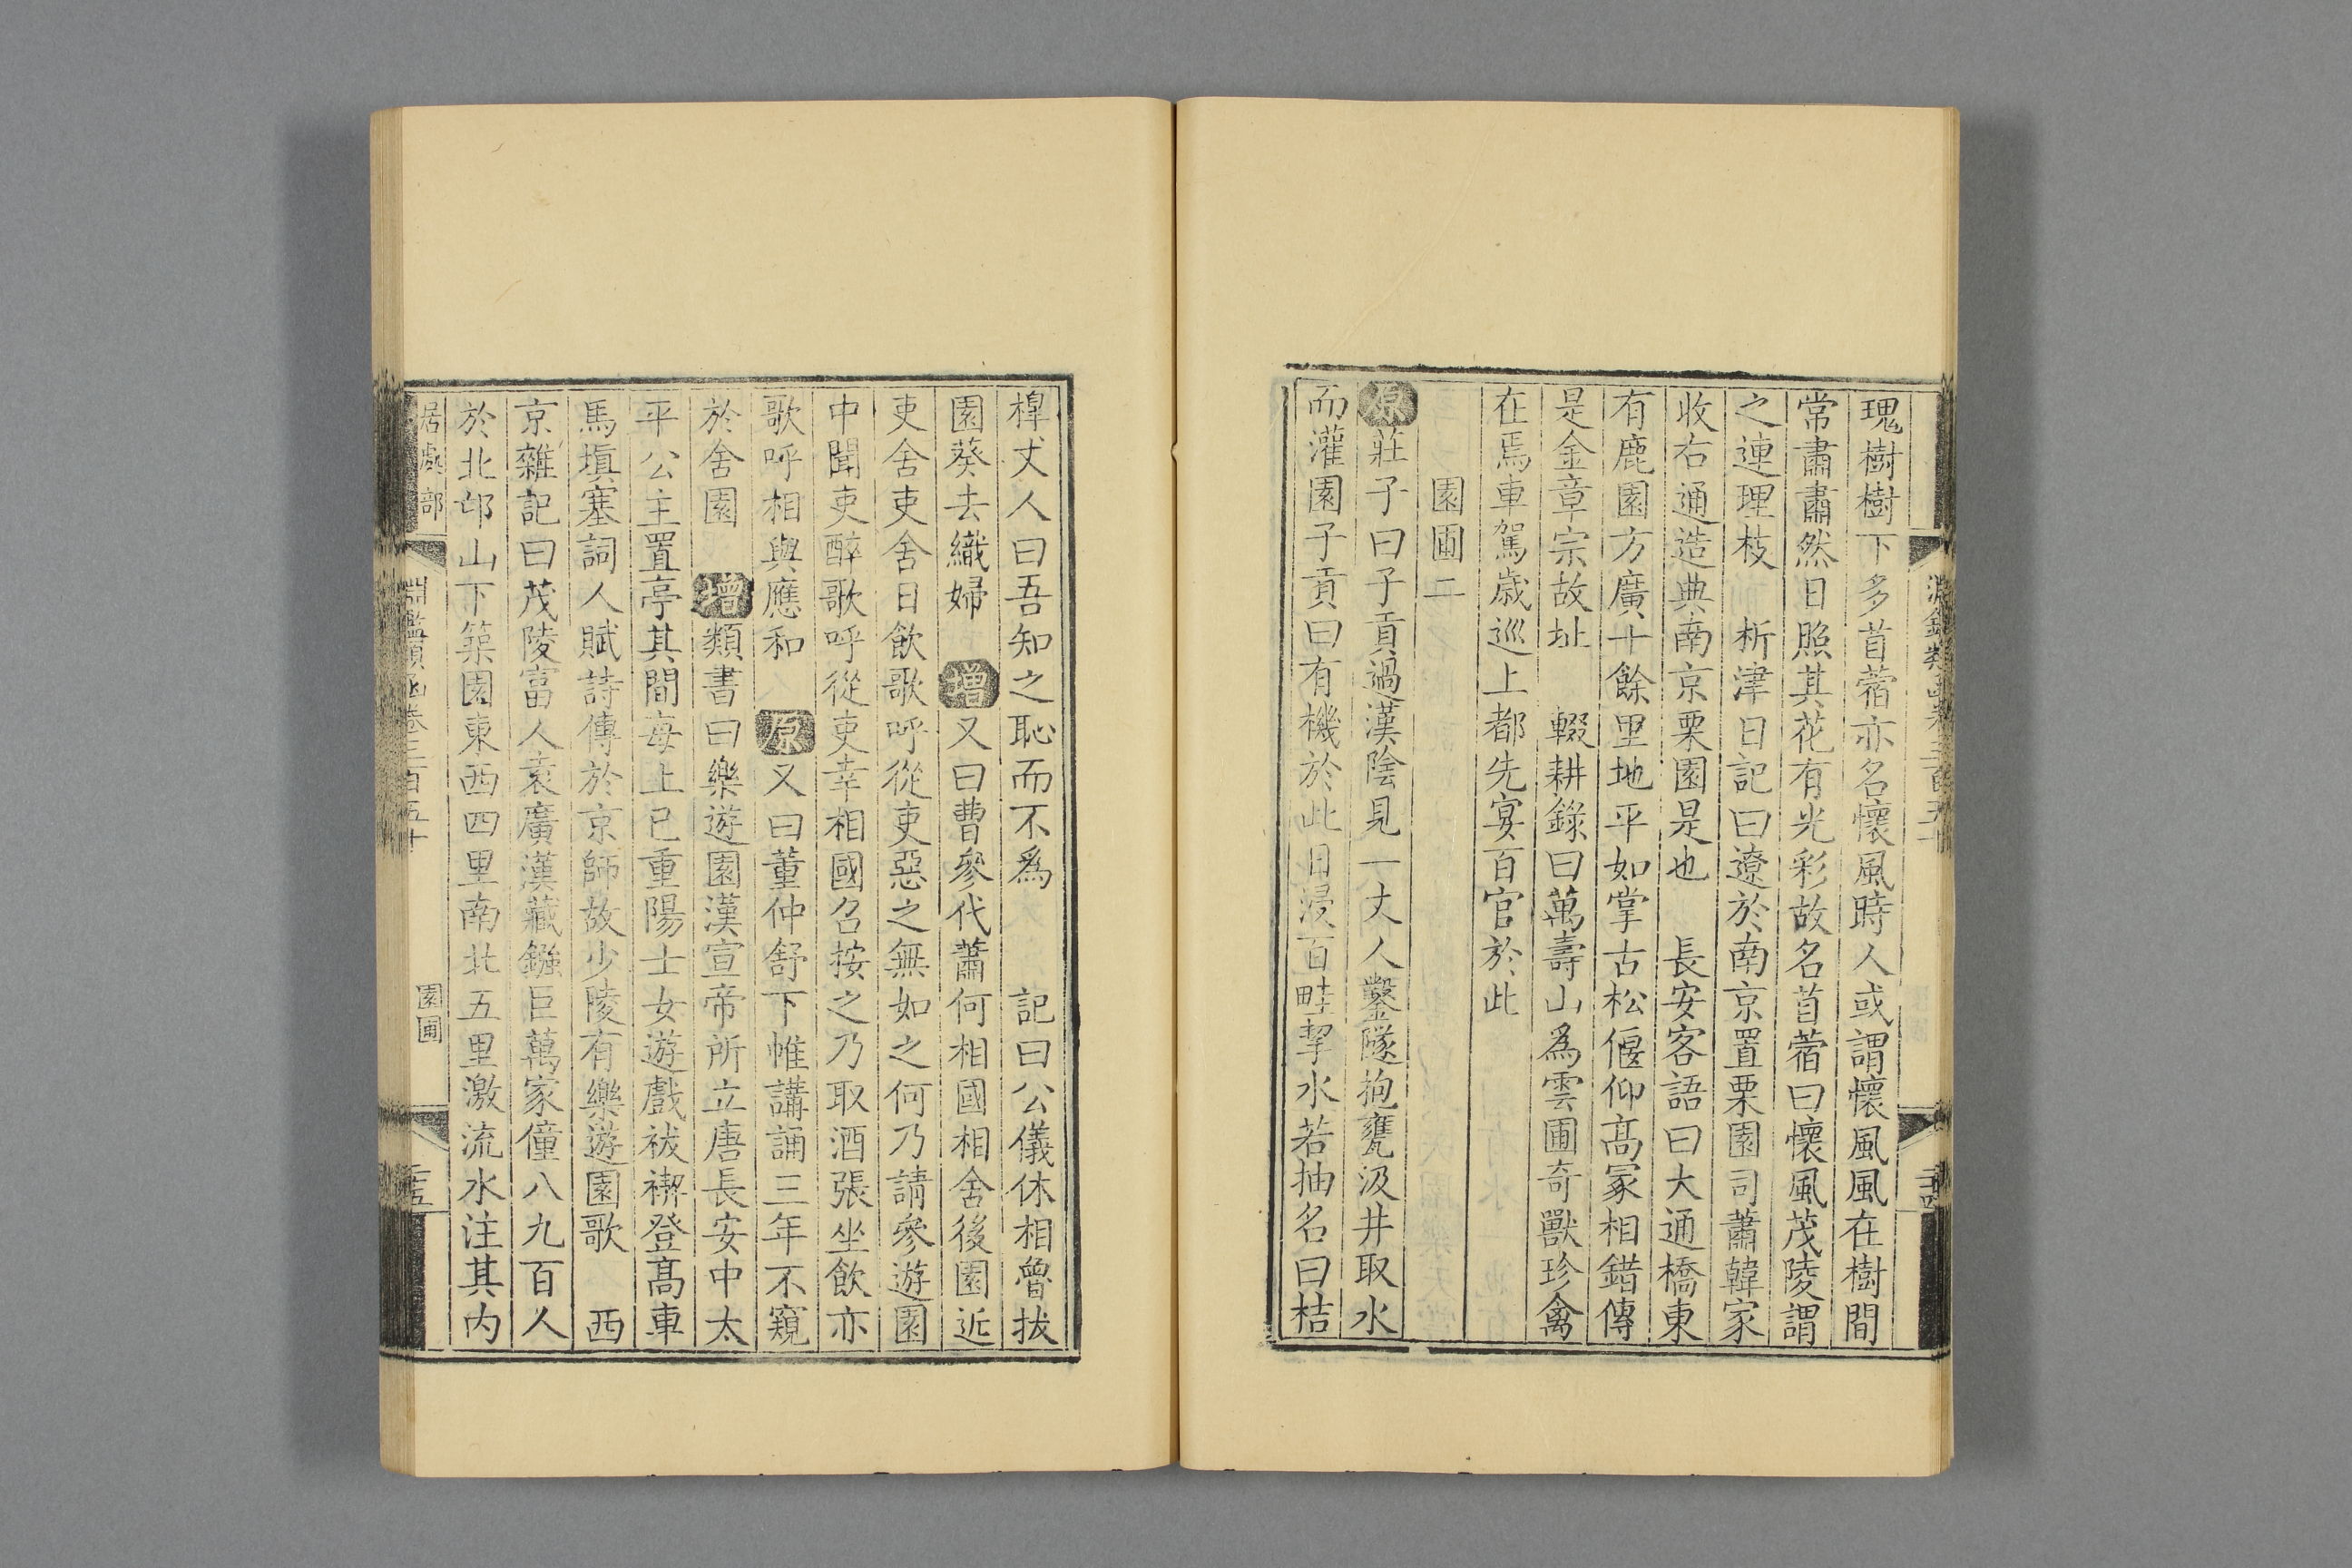 瑰樹樹下多苜蓿亦名懷風時人或謂懷風風在樹間
常肅肅然日照其花有光彩故名苜蓿曰懷風茂陵謂
之連理枝 析津日記曰遼於南京置栗園司蕭韓家
收右通造典南京栗園是也 長安客語曰大通橋東
有鹿園方廣十餘里地平如掌古松偃仰髙冢相錯傳
是金章宗故址 輟耕錄曰萬壽山爲雲圃奇獸珍禽
在焉車駕歲巡上都先宴百官於此
園圃二
原莊子曰子貢過漢陰見一丈人鑿隧抱甕汲井取水
而灌園子貢曰有機於此日浸百畦挈水若抽名曰桔
橰丈人曰吾知之恥而不爲 記曰公儀休相魯拔
園葵去織婦 增又曰曹參代蕭何相國相舍後園近
吏舍吏舍日飲歌呼從吏惡之無如之何乃請參遊園
中聞吏醉歌呼從吏幸相國召按之乃取酒張坐飲亦
歌呼相與應和 原又曰董仲舒下帷講誦三年不窺
於舍園 增類書曰樂遊園漢宣帝所立唐長安中太
平公主置亭其間每上巳重陽士女遊戲祓禊登髙車
馬塡塞詞人賦詩傳於京師故少陵有樂遊園歌 西
京雜記曰茂陵富人袁廣漢藏鏹巨萬家僮八九百人
於北邙山下築園東西四里南北五里激流水注其内
居處部 淵鑑類函卷三百五十 園圃 二五